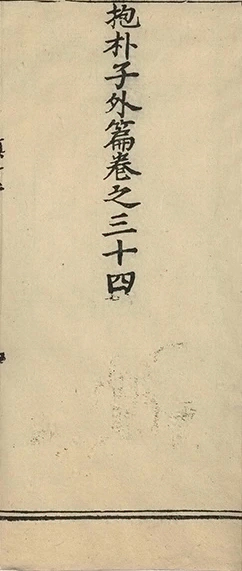 抱朴子外篇卷之三十四